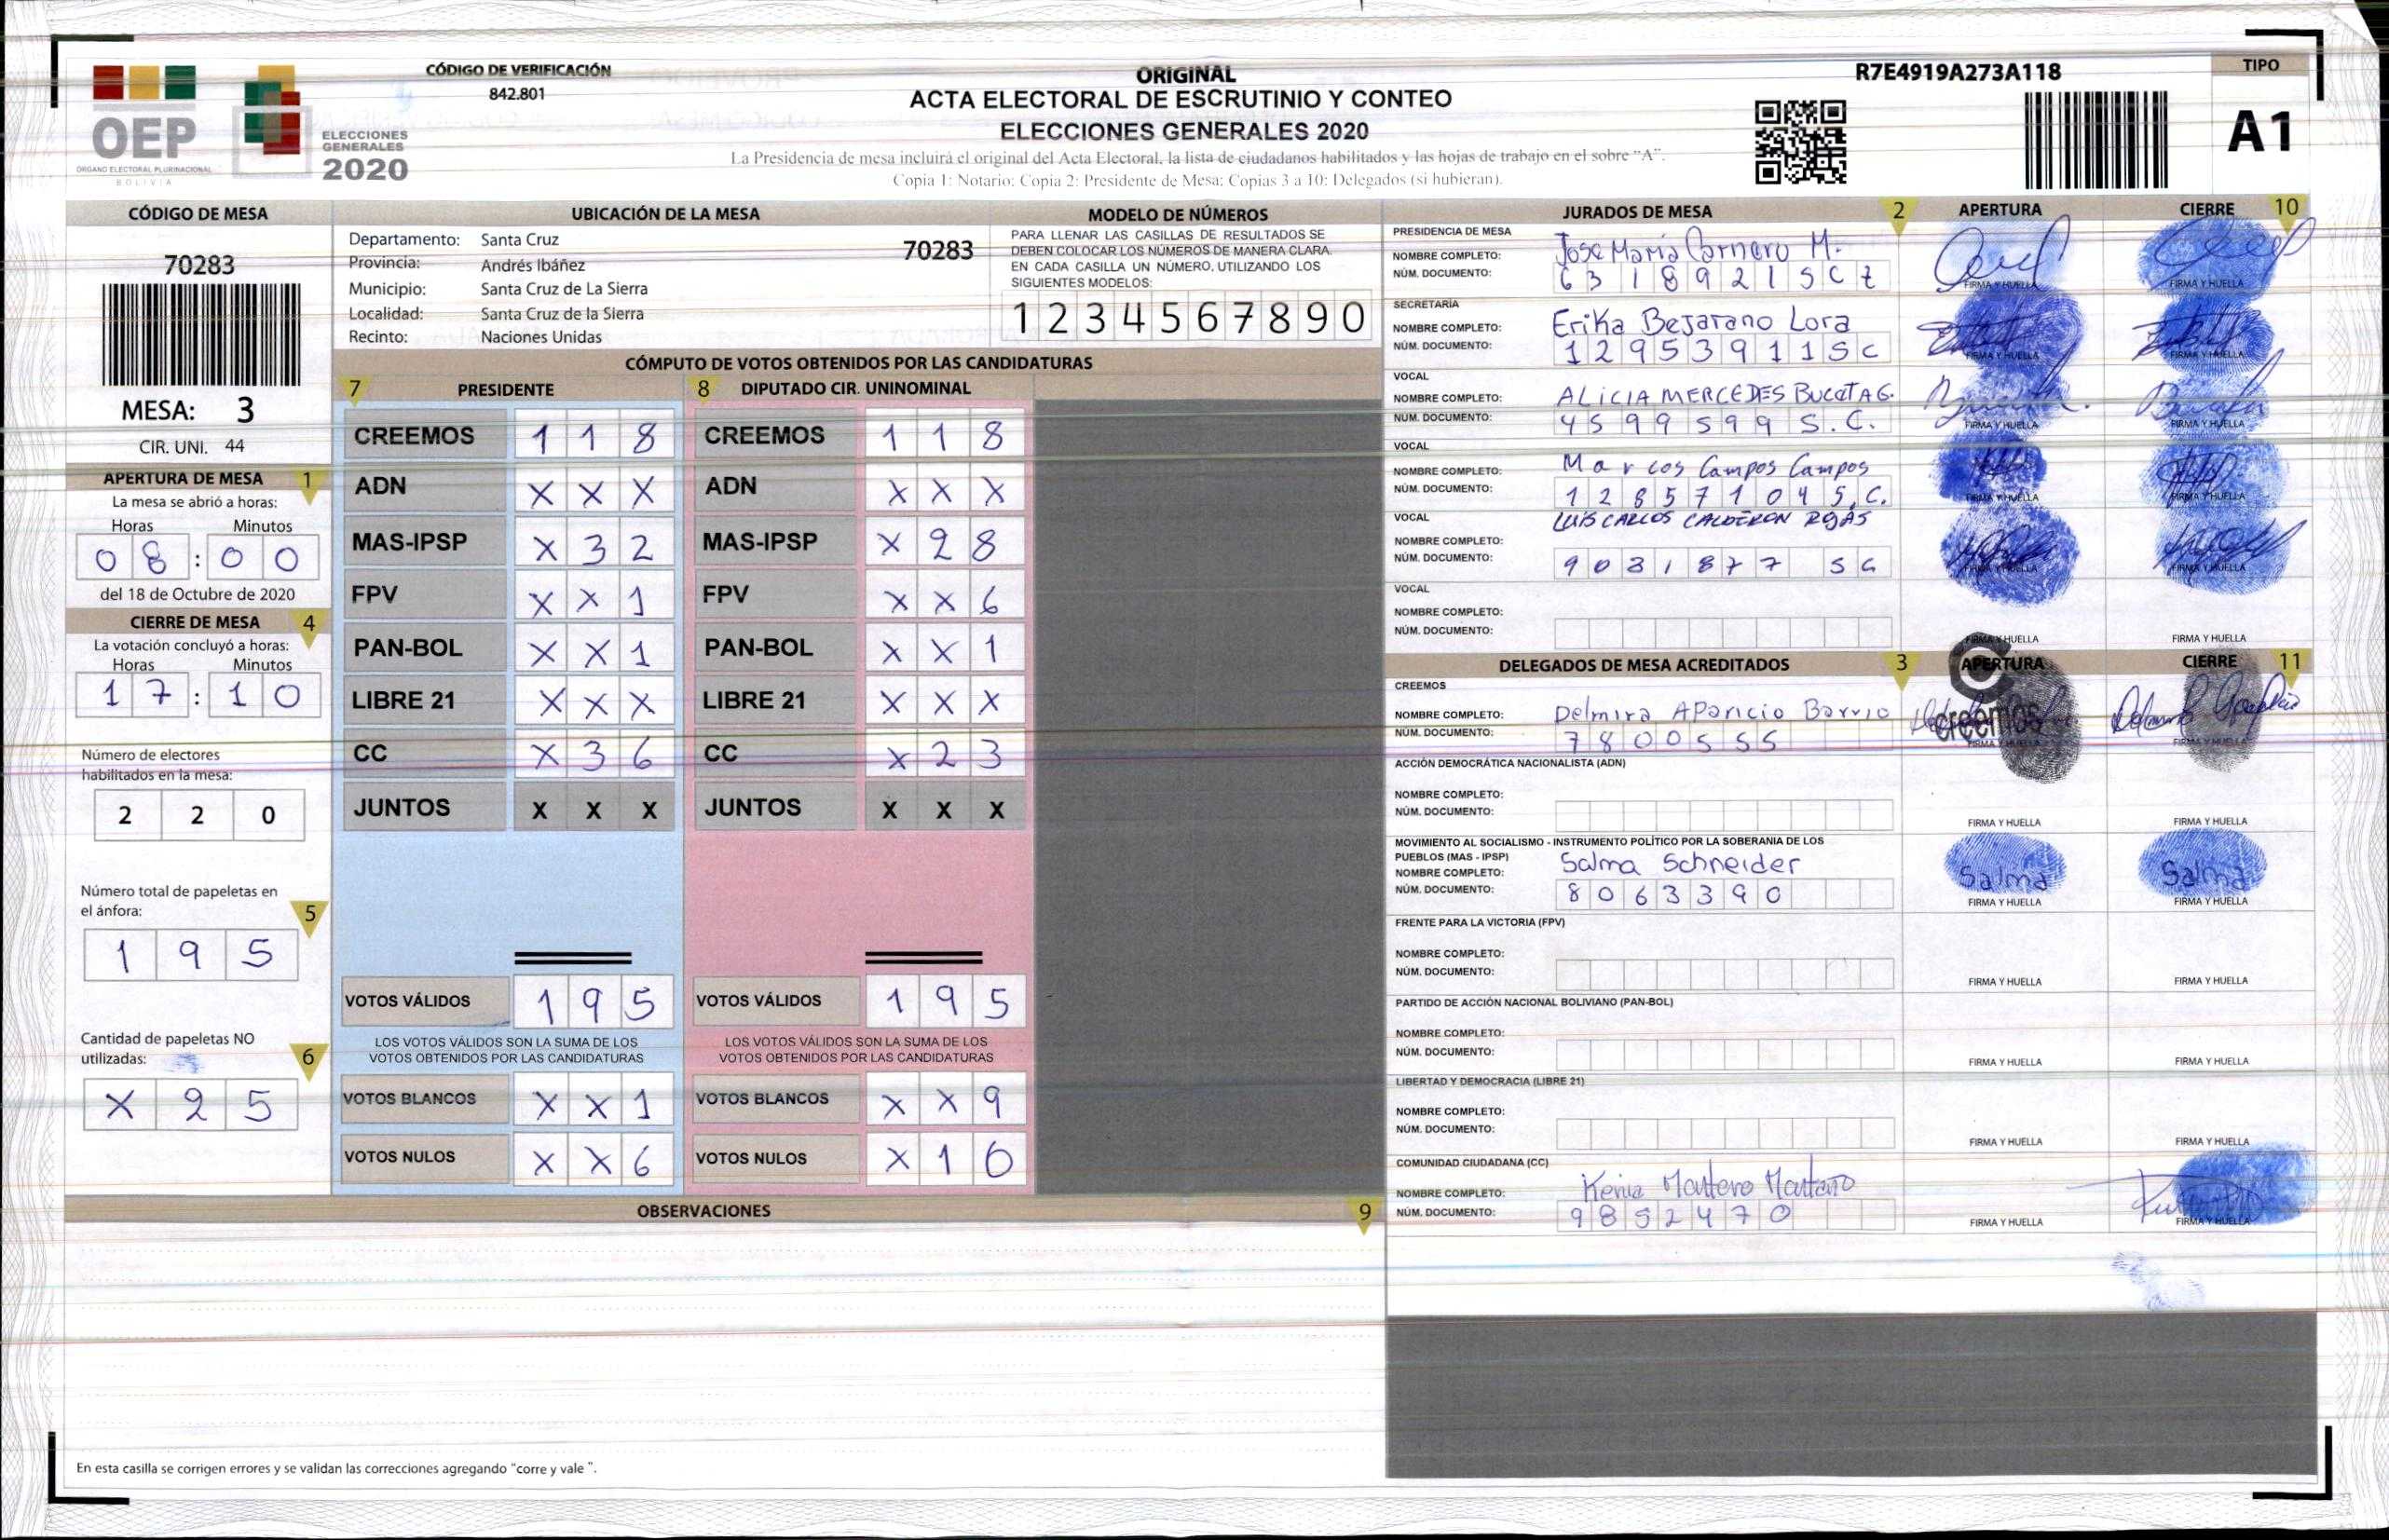 CÓDIGO DE VERIFICACIÓN
842.801
OEP
ÓRGANO ELECTORAL PLURINACIONAL
BOLIVIA
ELECCIONES
GENERALES
2020
ORIGINAL
ACTA ELECTORAL DE ESCRUTINIO Y CONTEO
ELECCIONES GENERALES 2020
La Presidencia de mesa incluirá el original del Acta Electoral, la lista de ciudadanos habilitados y las hojas de trabajo en el sobre “A”.
Copia 1: Notario; Copia 2: Presidente de Mesa; Copias 3 a 10: Delegados (si hubieran).
R7E4919A273A118
TIPO
A1
CÓDIGO DE MESA
70283
MESA: 3
CIR. UNI. 44
APERTURA DE MESA 1
La mesa se abrió a horas:
Horas Minutos
0 8 : 0 0
del 18 de Octubre de 2020
CIERRE DE MESA 4
La votación concluyó a horas:
Horas Minutos
1 7 : 1 0
Número de electores
habilitados en la mesa:
2 2 0
Número total de papeletas en
el ánfora: 5
1 9 5
Cantidad de papeletas NO
utilizadas: 6
X 2 5
UBICACIÓN DE LA MESA
Departamento: Santa Cruz
70283
Provincia: Andrés Ibáñez
Municipio: Santa Cruz de La Sierra
Localidad: Santa Cruz de la Sierra
Recinto: Naciones Unidas
MODELO DE NÚMEROS
PARA LLENAR LAS CASILLAS DE RESULTADOS SE
DEBEN COLOCAR LOS NÚMEROS DE MANERA CLARA.
EN CADA CASILLA UN NÚMERO, UTILIZANDO LOS
SIGUIENTES MODELOS:
1 2 3 4 5 6 7 8 9 0
CÓMPUTO DE VOTOS OBTENIDOS POR LAS CANDIDATURAS
7 PRESIDENTE
CREEMOS 1 1 8
ADN X X X
MAS-IPSP X 3 2
FPV X X 1
PAN-BOL X X 1
LIBRE 21 X X X
CC X 3 6
JUNTOS X X X
VOTOS VÁLIDOS 1 9 5
LOS VOTOS VÁLIDOS SON LA SUMA DE LOS
VOTOS OBTENIDOS POR LAS CANDIDATURAS
VOTOS BLANCOS X X 1
VOTOS NULOS X X 6
8 DIPUTADO CIR. UNINOMINAL
CREEMOS 1 1 8
ADN X X X
MAS-IPSP X 28
FPV X X 6
PAN-BOL X X 1
LIBRE 21 X X X
CC X 2 3
JUNTOS X X X
VOTOS VÁLIDOS 1 9 5
LOS VOTOS VÁLIDOS SON LA SUMA DE LOS
VOTOS OBTENIDOS POR LAS CANDIDATURAS
VOTOS BLANCOS X X 9
VOTOS NULOS X 1 0
OBSERVACIONES 9
En esta casilla se corrigen errores y se validan las correcciones agregando “corre y vale ”.
JURADOS DE MESA 2 APERTURA CIERRE 10
PRESIDENCIA DE MESA
NOMBRE COMPLETO: Jose María Cornero M.
NÚM. DOCUMENTO: 6 3 1 8 9 2 1 S C Z
FIRMA Y HUELLA FIRMA Y HUELLA
SECRETARÍA
NOMBRE COMPLETO: Erika Bejarano Lora
NÚM. DOCUMENTO: 1 2 9 5 3 9 1 1 S C
FIRMA Y HUELLA FIRMA Y HUELLA
VOCAL
NOMBRE COMPLETO: ALICIA MERCEDES
NÚM. DOCUMENTO: 4 5 9 9 5 9 9 S. C.
FIRMA Y HUELLA FIRMA Y HUELLA
VOCAL
NOMBRE COMPLETO: Marcos Campos Campos
NÚM. DOCUMENTO: 1 2 8 5 7 1 0 4 S. C.
FIRMA Y HUELLA FIRMA Y HUELLA
VOCAL
LUIS CARLOS CALDERON ROJAS
NOMBRE COMPLETO:
NÚM. DOCUMENTO: 9 0 3 1 8 7 7 S C
FIRMA Y HUELLA FIRMA Y HUELLA
VOCAL
NOMBRE COMPLETO:
NÚM. DOCUMENTO:
FIRMA Y HUELLA FIRMA Y HUELLA
DELEGADOS DE MESA ACREDITADOS 3 APERTURA CIERRE 11
CREEMOS
NOMBRE COMPLETO: Delmira Aparicio Barrio
creemos
NÚM. DOCUMENTO: 7 8 0 0 5 5 5
FIRMA Y HUELLA FIRMA Y HUELLA
ACCIÓN DEMOCRÁTICA NACIONALISTA (ADN)
NOMBRE COMPLETO:
NÚM. DOCUMENTO:
FIRMA Y HUELLA FIRMA Y HUELLA
MOVIMIENTO AL SOCIALISMO - INSTRUMENTO POLÍTICO POR LA SOBERANIA DE LOS
PUEBLOS (MAS - IPSP)
NOMBRE COMPLETO: Salma Schneider
Salma Salma
NÚM. DOCUMENTO: 8 0 6 3 3 9 0
FIRMA Y HUELLA FIRMA Y HUELLA
FRENTE PARA LA VICTORIA (FPV)
NOMBRE COMPLETO:
NÚM. DOCUMENTO:
FIRMA Y HUELLA FIRMA Y HUELLA
PARTIDO DE ACCIÓN NACIONAL BOLIVIANO (PAN-BOL)
NOMBRE COMPLETO:
NÚM. DOCUMENTO:
FIRMA Y HUELLA FIRMA Y HUELLA
LIBERTAD Y DEMOCRACIA (LIBRE 21)
NOMBRE COMPLETO:
NÚM. DOCUMENTO:
FIRMA Y HUELLA FIRMA Y HUELLA
COMUNIDAD CIUDADANA (CC)
NOMBRE COMPLETO: Kenia Montero Montaño
NÚM. DOCUMENTO: 9 8 5 2 4 7 0
FIRMA Y HUELLA FIRMA Y HUELLA